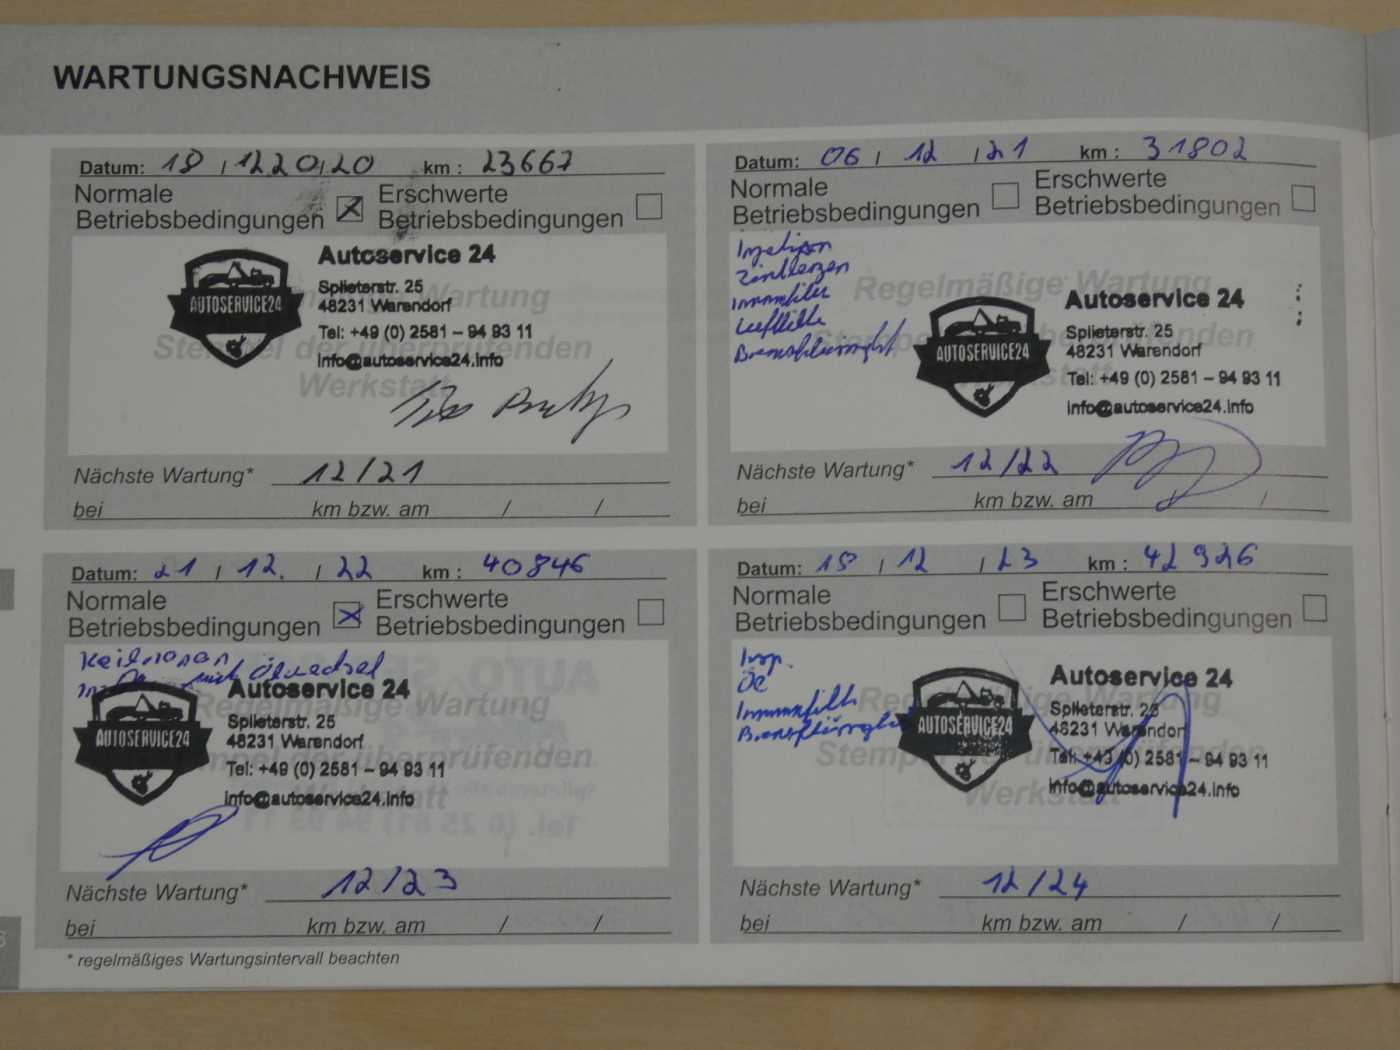 WARTUNGSNACHWEIS
Datum: 18 / 12 20/20 km : 23667
Normale Betriebsbedingungen
Erschwerte Betriebsbedingungen
Regelmäßige Wartung
Stempel der überprüfenden
Werkstatt
AUTOSERVICE24
Autoservice 24
Splieterstr. 25
48231 Warendorf
Tel: +49 (0) 2581 – 94 93 11
info@autoservice24.info
Nächste Wartung* 12/21
bei km bzw. am / /
Datum: 06 / 12 / 21 km : 31802
Normale Betriebsbedingungen
Erschwerte Betriebsbedingungen
Zündkerzen
Innenfilter
Luftfilter
Bremsflüssigkeit
Regelmäßige Wartung
Stempel der überprüfenden
Werkstatt
AUTOSERVICE24
Autoservice 24
Splieterstr. 25
48231 Warendorf
Tel: +49 (0) 2581 – 94 93 11
info@autoservice24.info
Nächste Wartung* 12/22
bei km bzw. am / /
Datum: 21 / 12. / 22 km : 40846
Normale Betriebsbedingungen
Erschwerte Betriebsbedingungen
Ölwechsel
Regelmäßige Wartung
Stempel der überprüfenden
Werkstatt
AUTOSERVICE24
Autoservice 24
Splieterstr. 25
48231 Warendorf
Tel: +49 (0) 2581 – 94 93 11
info@autoservice24.info
Nächste Wartung* 12/23
bei km bzw. am / /
Datum: 18 / 12 / 23 km : 42926
Normale Betriebsbedingungen
Erschwerte Betriebsbedingungen
Insp.
Öl
Innenraumfilter
Bremsflüssigkeit
Regelmäßige Wartung
Stempel der überprüfenden
Werkstatt
AUTOSERVICE24
Autoservice 24
Splieterstr. 25
48231 Warendorf
Tel: +49 (0) 2581 – 94 93 11
info@autoservice24.info
Nächste Wartung* 12/24
bei km bzw. am / /
* regelmäßiges Wartungsintervall beachten